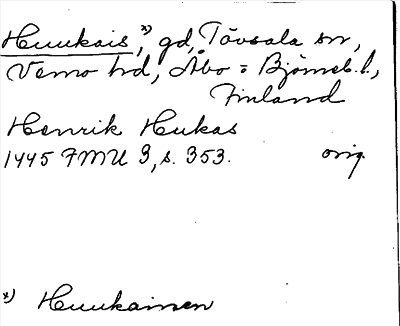 Huukais,ˣ⁾ gd, Tövsala sn,
Vemo hd, Åbo = Björneb. l.,
Finland
Henrik Hukas
1445 FMU 3, s. 353. orig.
ˣ⁾ Huukainen